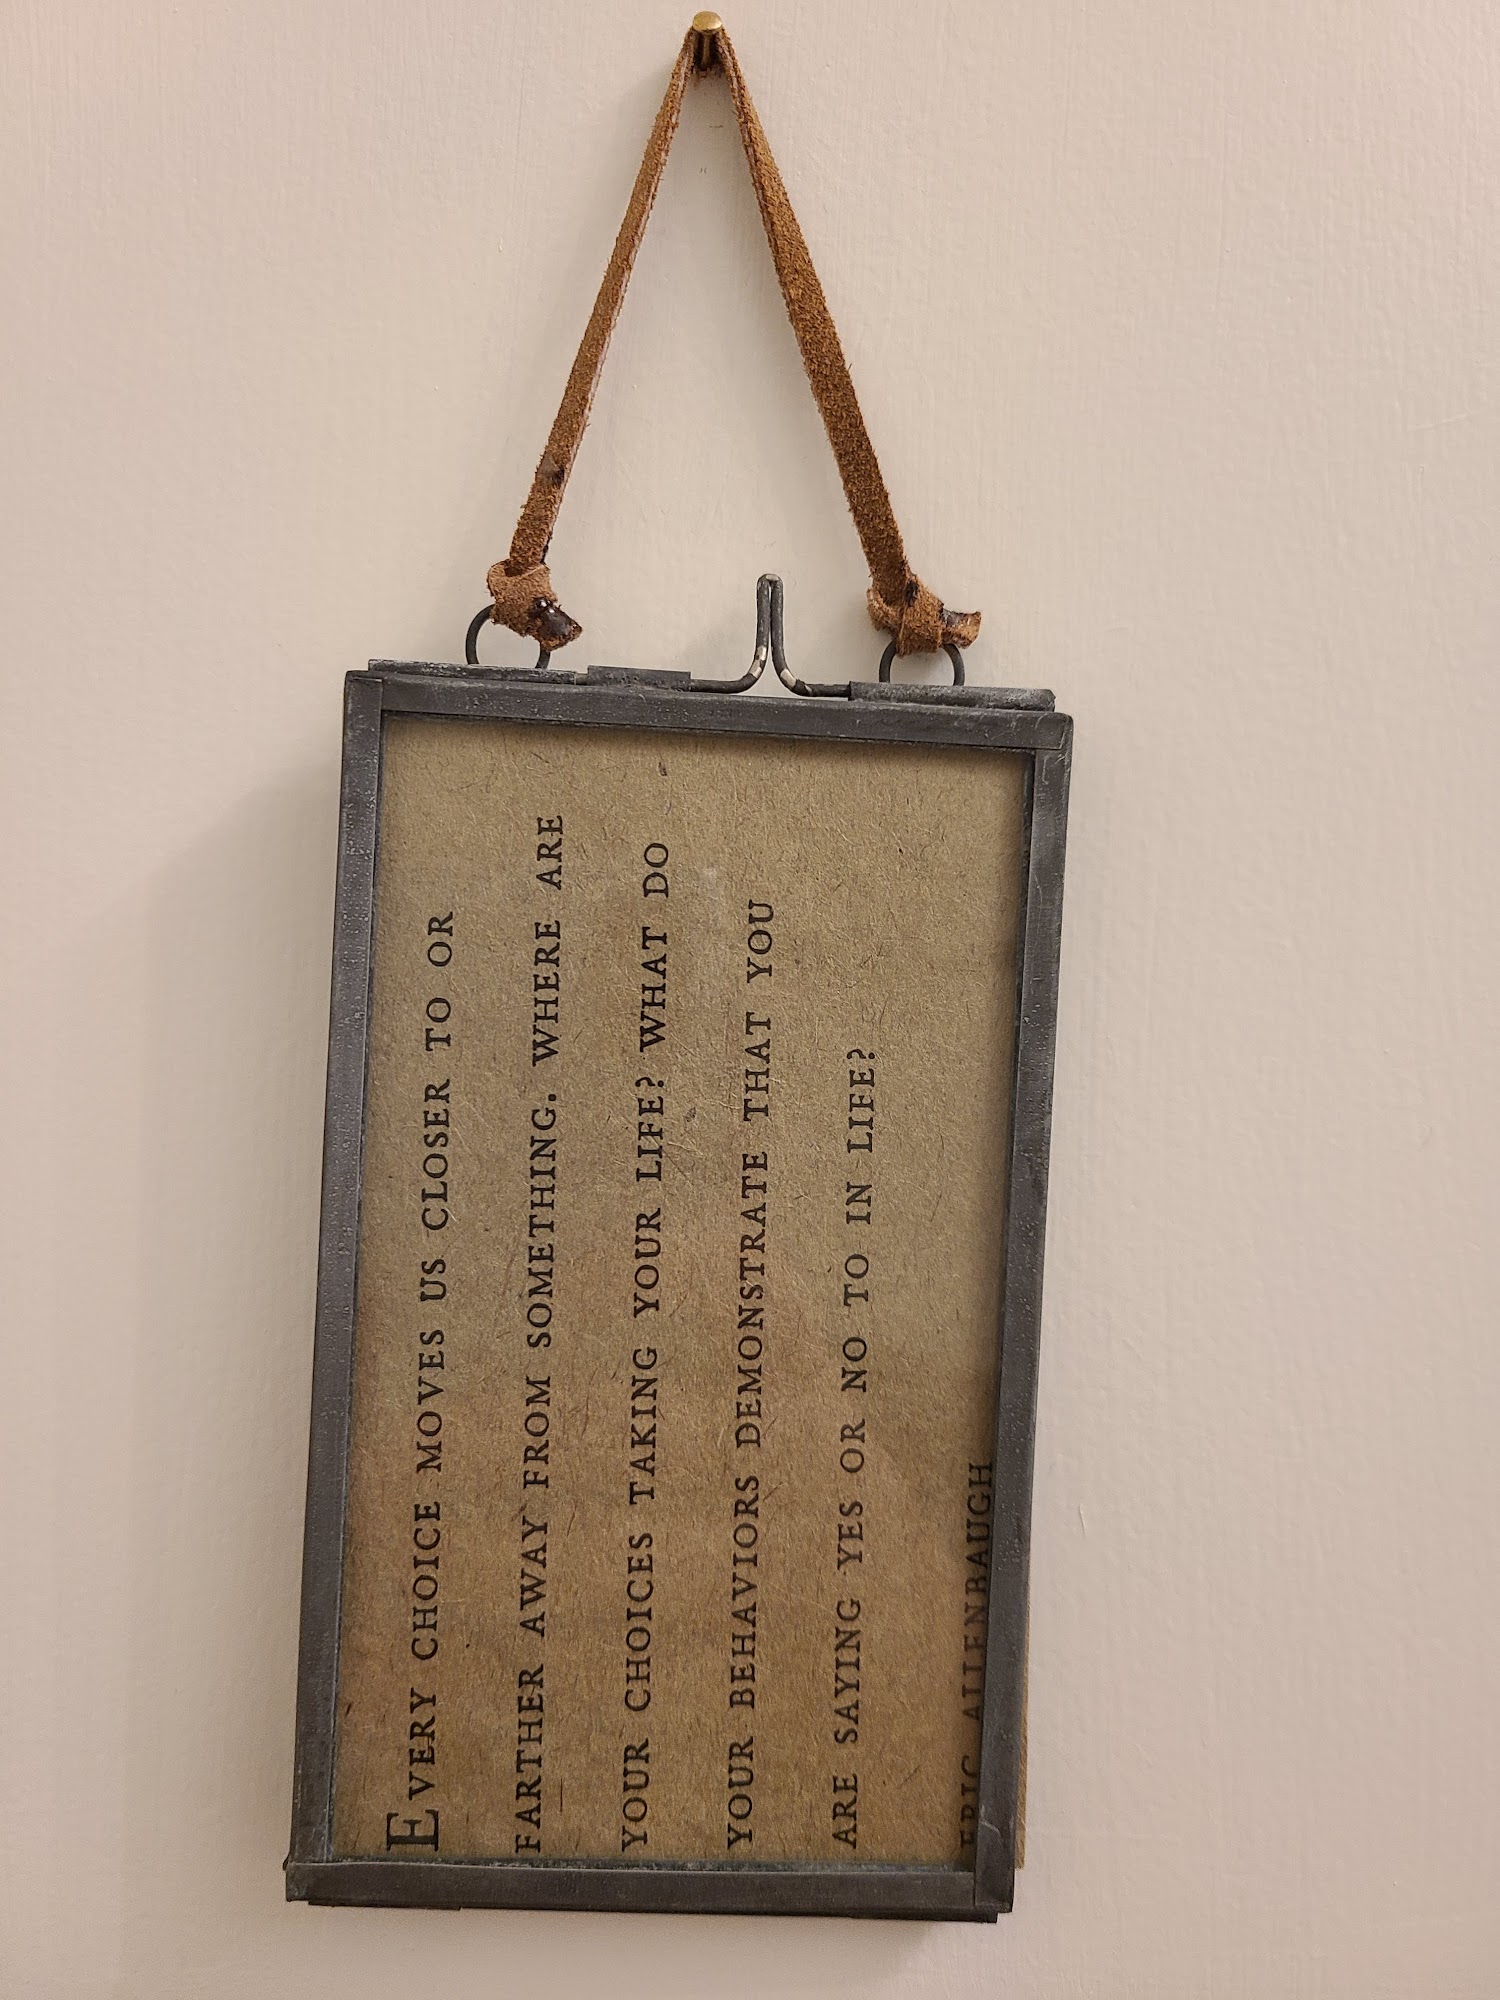 EVERY CHOICE MOVES US CLOSER TO OR
FARTHER AWAY FROM SOMETHING. WHERE ARE
YOUR CHOICES TAKING YOUR LIFE? WHAT DO
YOUR BEHAVIORS DEMONSTRATE THAT YOU
ARE SAYING YES OR NO TO IN LIFE?
ERIC ALLENBAUGH